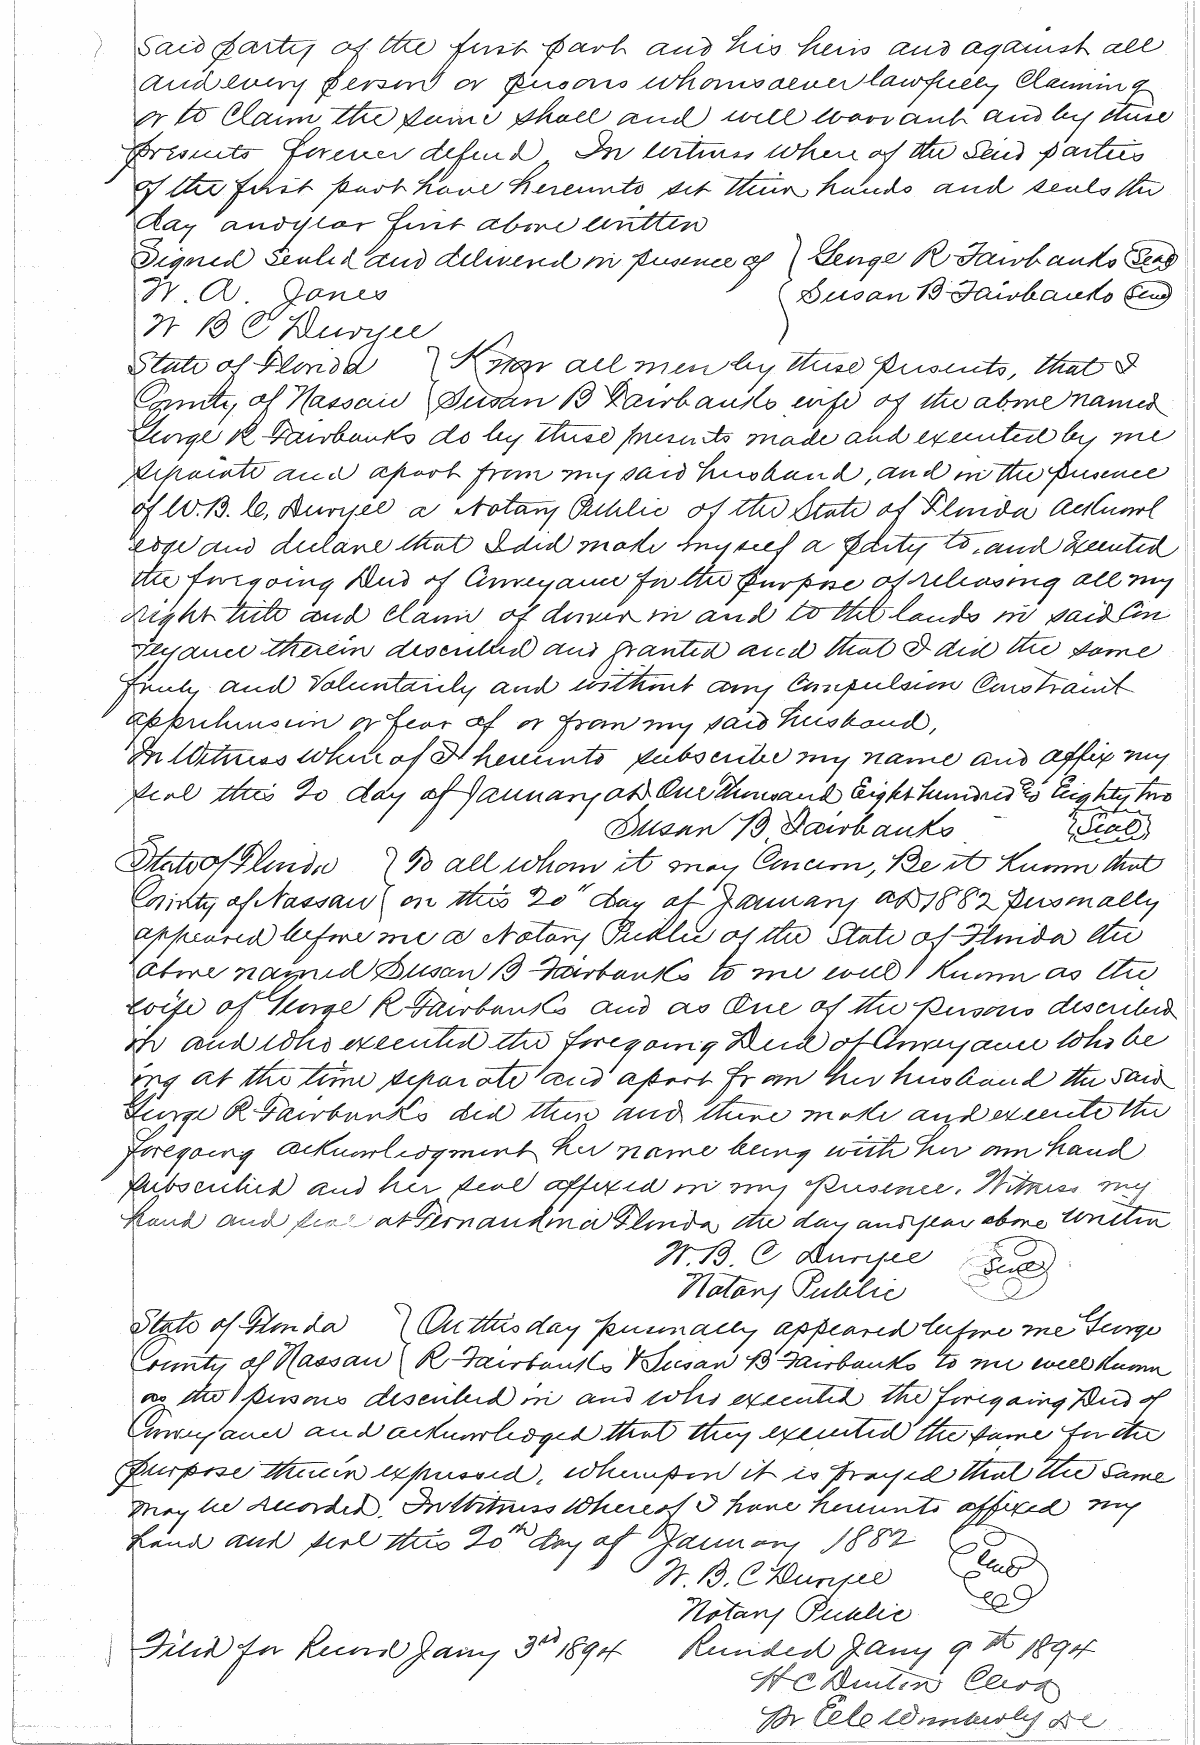 said party of the first part and his heirs and against all
and every person or persons whomsoever lawfully Claiming
or to Claim the same shall and will warrant and by these
presents forever defend, In witness where of the said parties
of the first part have hereunto set their hands and seals the
day and year first above written
Signed Sealed and delivered in presence of George R Fairbanks Seal
W. A. Jones Susan B Fairbanks Seal
W B C Duryee
State of Florida Know all men by these presents, that I
County of Nassau Susan B Fairbanks wife of the above named
George R Fairbanks do by these presents made and executed by me
separate and apart from my said husband, and in the presence
of W. B. C. Duryee a Notary Public of the State of Florida acknowl
edge and declare that I did make myself a party to, and Executed
the foregoing Deed of Conveyance for the purpose of releasing all my
right title and claim of dower in and to the lands in said Con
veyance therein described and granted and that I did the same
freely and Voluntarily and without any Compulsion Constraint
apprehension or fear of or from my said husband,
In Witness where of I hereunto subscribe my name and affix my
seal this 20 day of January AD One Thousand Eight hundred & Eighty two
Susan B. Fairbanks Seal
State of Florida To all whom it may Concern, Be it Known that
County of Nassau on this 20" day of January AD 1882 personally
appeared before me a Notary Public of the State of Florida the
above named Susan B Fairbanks to me well Known as the
wife of George R Fairbanks and as One of the persons described
in and who executed the foregoing Deed of Conveyance who be
ing at the time separate and apart from her husband the said
George R Fairbanks did then and there make and execute the
foregoing acknowledgment her name being with her own hand
subscribed and her seal affixed in my presence. Witness my
hand and seal at Fernandina Florida the day and year above written
W. B. C Duryee Seal
Notary Public
State of Florida On this day personally appeared before me George
County of Nassau R Fairbanks & Susan B Fairbanks to me well Known
as the persons described in and who executed the foregoing Deed of
Conveyance and acknowledged that they executed the same for the
purpose therein expressed, whereupon it is prayed that the same
may be recorded. In Witness Whereof I have hereunto affixed my
hand and seal this 20th day of January 1882
W. B. C Duryee Seal
Notary Public
Filed for Record Jany 3rd 1894 Recorded Jany 9th 1894
H C Clerk
DC